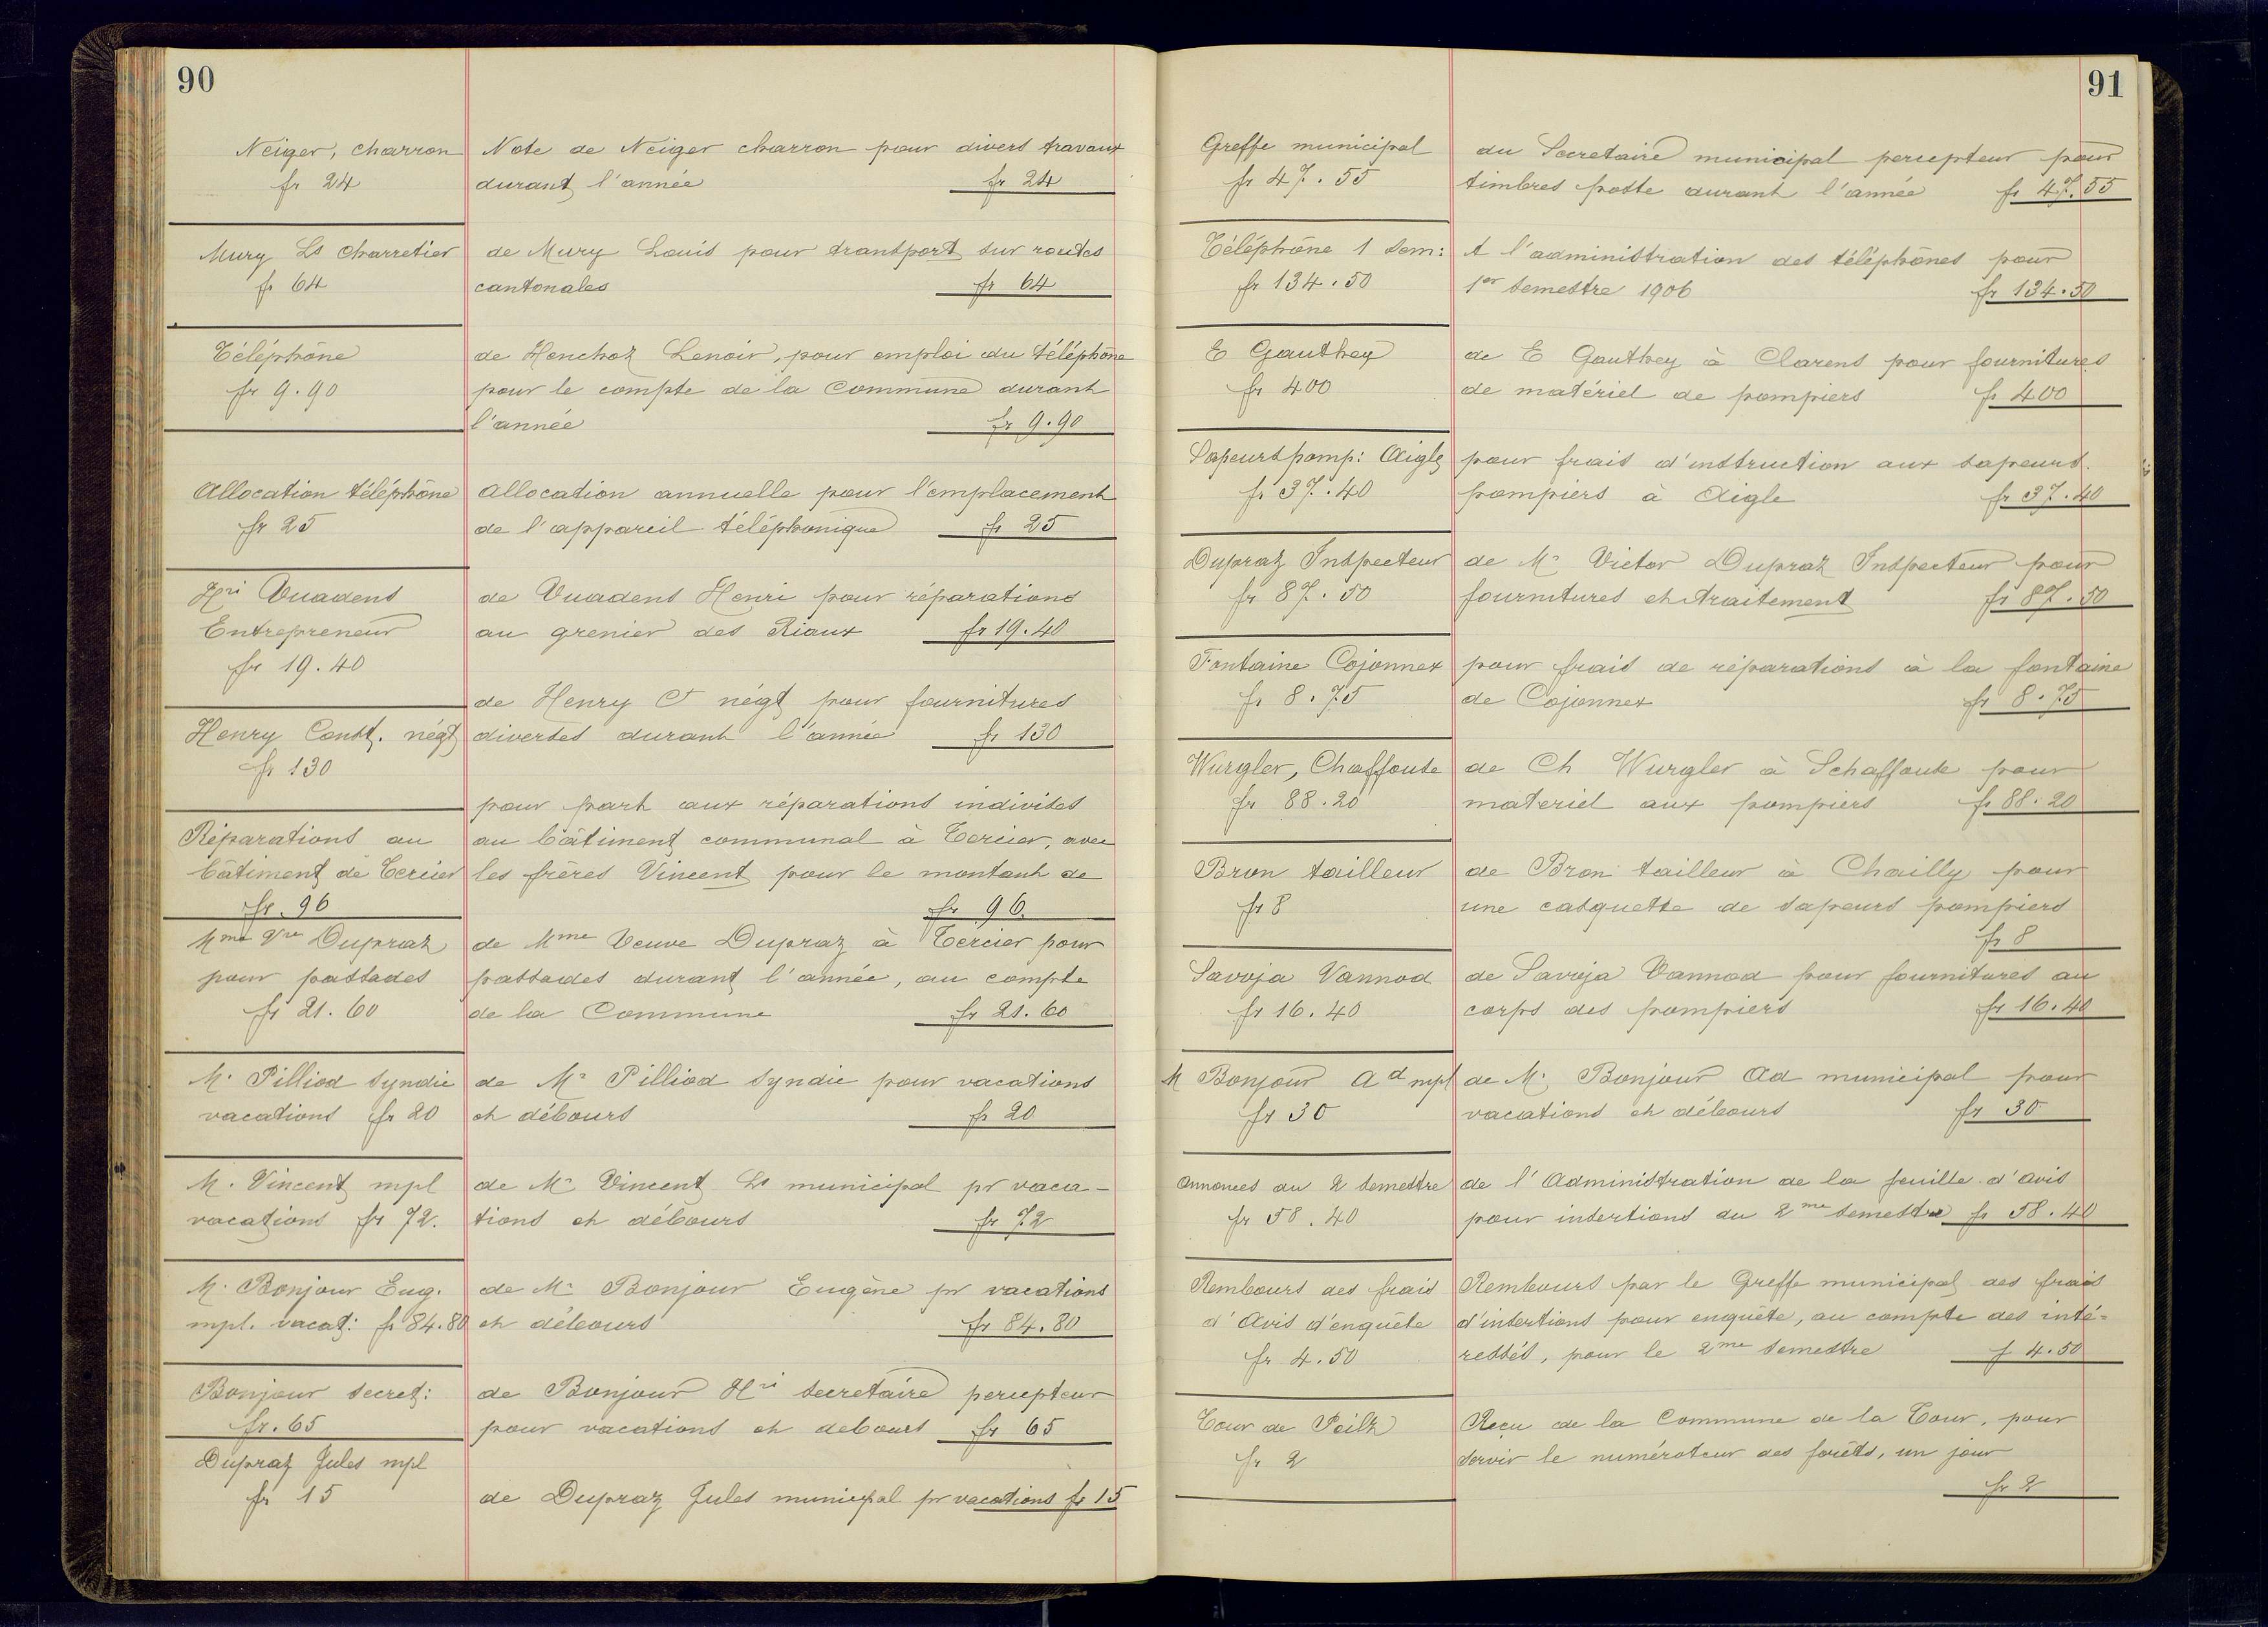 90
Neiger, charron
fr 24
Note de Neiger charron pour divers travaux
durant l'année fr 24
Mury Ls charretier
fr 64
de Mury Louis pour transport sur routes
cantonales fr 64
Téléphône
fr 9.90
de Henchoz Lenoir, pour emploi du téléphône
pour le compte de la Commune durant
l'année fr 9.90
Allocation téléphône
fr 25
Allocation annuelle pour l'emplacement
de l'appareil téléphonique fr 25
Hri Vuadens
Entrepreneur
fr 19.40
de Vuadens Henri pour réparations
au grenier des Riaux fr 19.40
Henry Const. négt
fr 130
de Henry C négt pour fournitures
diverses durant l'année fr 130
Réparations au
bâtiment de Tercier
fr. 96
pour part aux réparations indivises
au bâtiment communal à Tercier, avec
les frères Vincent pour le montant de
fr 96.
Mme Vve Dupraz
pour passades
fr 21.60
de Mme Veuve Dupraz à Tercier pour
passades durant l'année, au compte
de la Commune fr 21.60
M. Pilliod syndic
vacations fr 20
de Mr Pilliod syndic pour vacations
et débours fr 20
M. Vincent mpl
vacations fr 72.
de Mr Vincent Ls municipal pr vaca-
tions et débours fr 72
M. Bonjour Eug.
mpl. vacat: fr 84.80
de Mr Bonjour Eugène pr vacations
et débours fr 84.80
Bonjour secret:
fr. 65
de Bonjour Hri secretaire percepteur
pour vacations et debours fr 65
Dupraz Jules mpl
fr 15
de Dupraz Jules municipal pr vacations fr 15
91
Greffe municipal
fr 47.55
du Secretaire municipal percepteur pour
timbres poste durant l'année fr 47.55
Téléphône 1 sem:
fr 134.50
A l'administration des téléphônes pour
1er semestre 1906 fr 134.50
E Gauthey
fr 400
de E Gauthey à Clarens pour fournitures
de matériel de pompiers fr 400
Sapeurs pomp: Aigle
fr 37.40
pour frais d'instruction aux sapeurs.
pompiers à Aigle fr 37.40
Dupraz Inspecteur
fr 87.50
de Mr Victor Dupraz Inspecteur pour
fournitures et traitement fr 87.50
Fontaine Cojonnex
fr 8.75
pour frais de réparations à la fontaine
de Cojonnex fr 8.75
Wurgler, Chaffouse
fr 88.20
de Ch Wurgler à Schaffouse pour
materiel aux pompiers fr 88.20
Bron tailleur
fr 8
de Bron tailleur à Chailly pour
une casquette de sapeurs pompiers
fr 8
Savoja Vannod
fr 16.40
de Savoja Vannod pour fournitures au
corps des pompiers fr 16.40
M Bonjour Ad mpl
fr 30
de Mr Bonjour Ad municipal pour
vacations et débours fr 30
Annonces du 2 semestre
fr 58.40
de l'Administration de la feuille d'avis
pour insertions du 2me semestre fr 58.40
Rembours des frais
d'Avis d'enquête
fr 4.50
Rembours par le Greffe municipal des frais
d'insertions pour enquête, au compte des inté-
ressés, pour le 2me semestre f 4.50
Tour de Peilz
fr 2
Reçu de la Commune de la Tour, pour
servir le numéroteur des forêts, un jour
fr 2